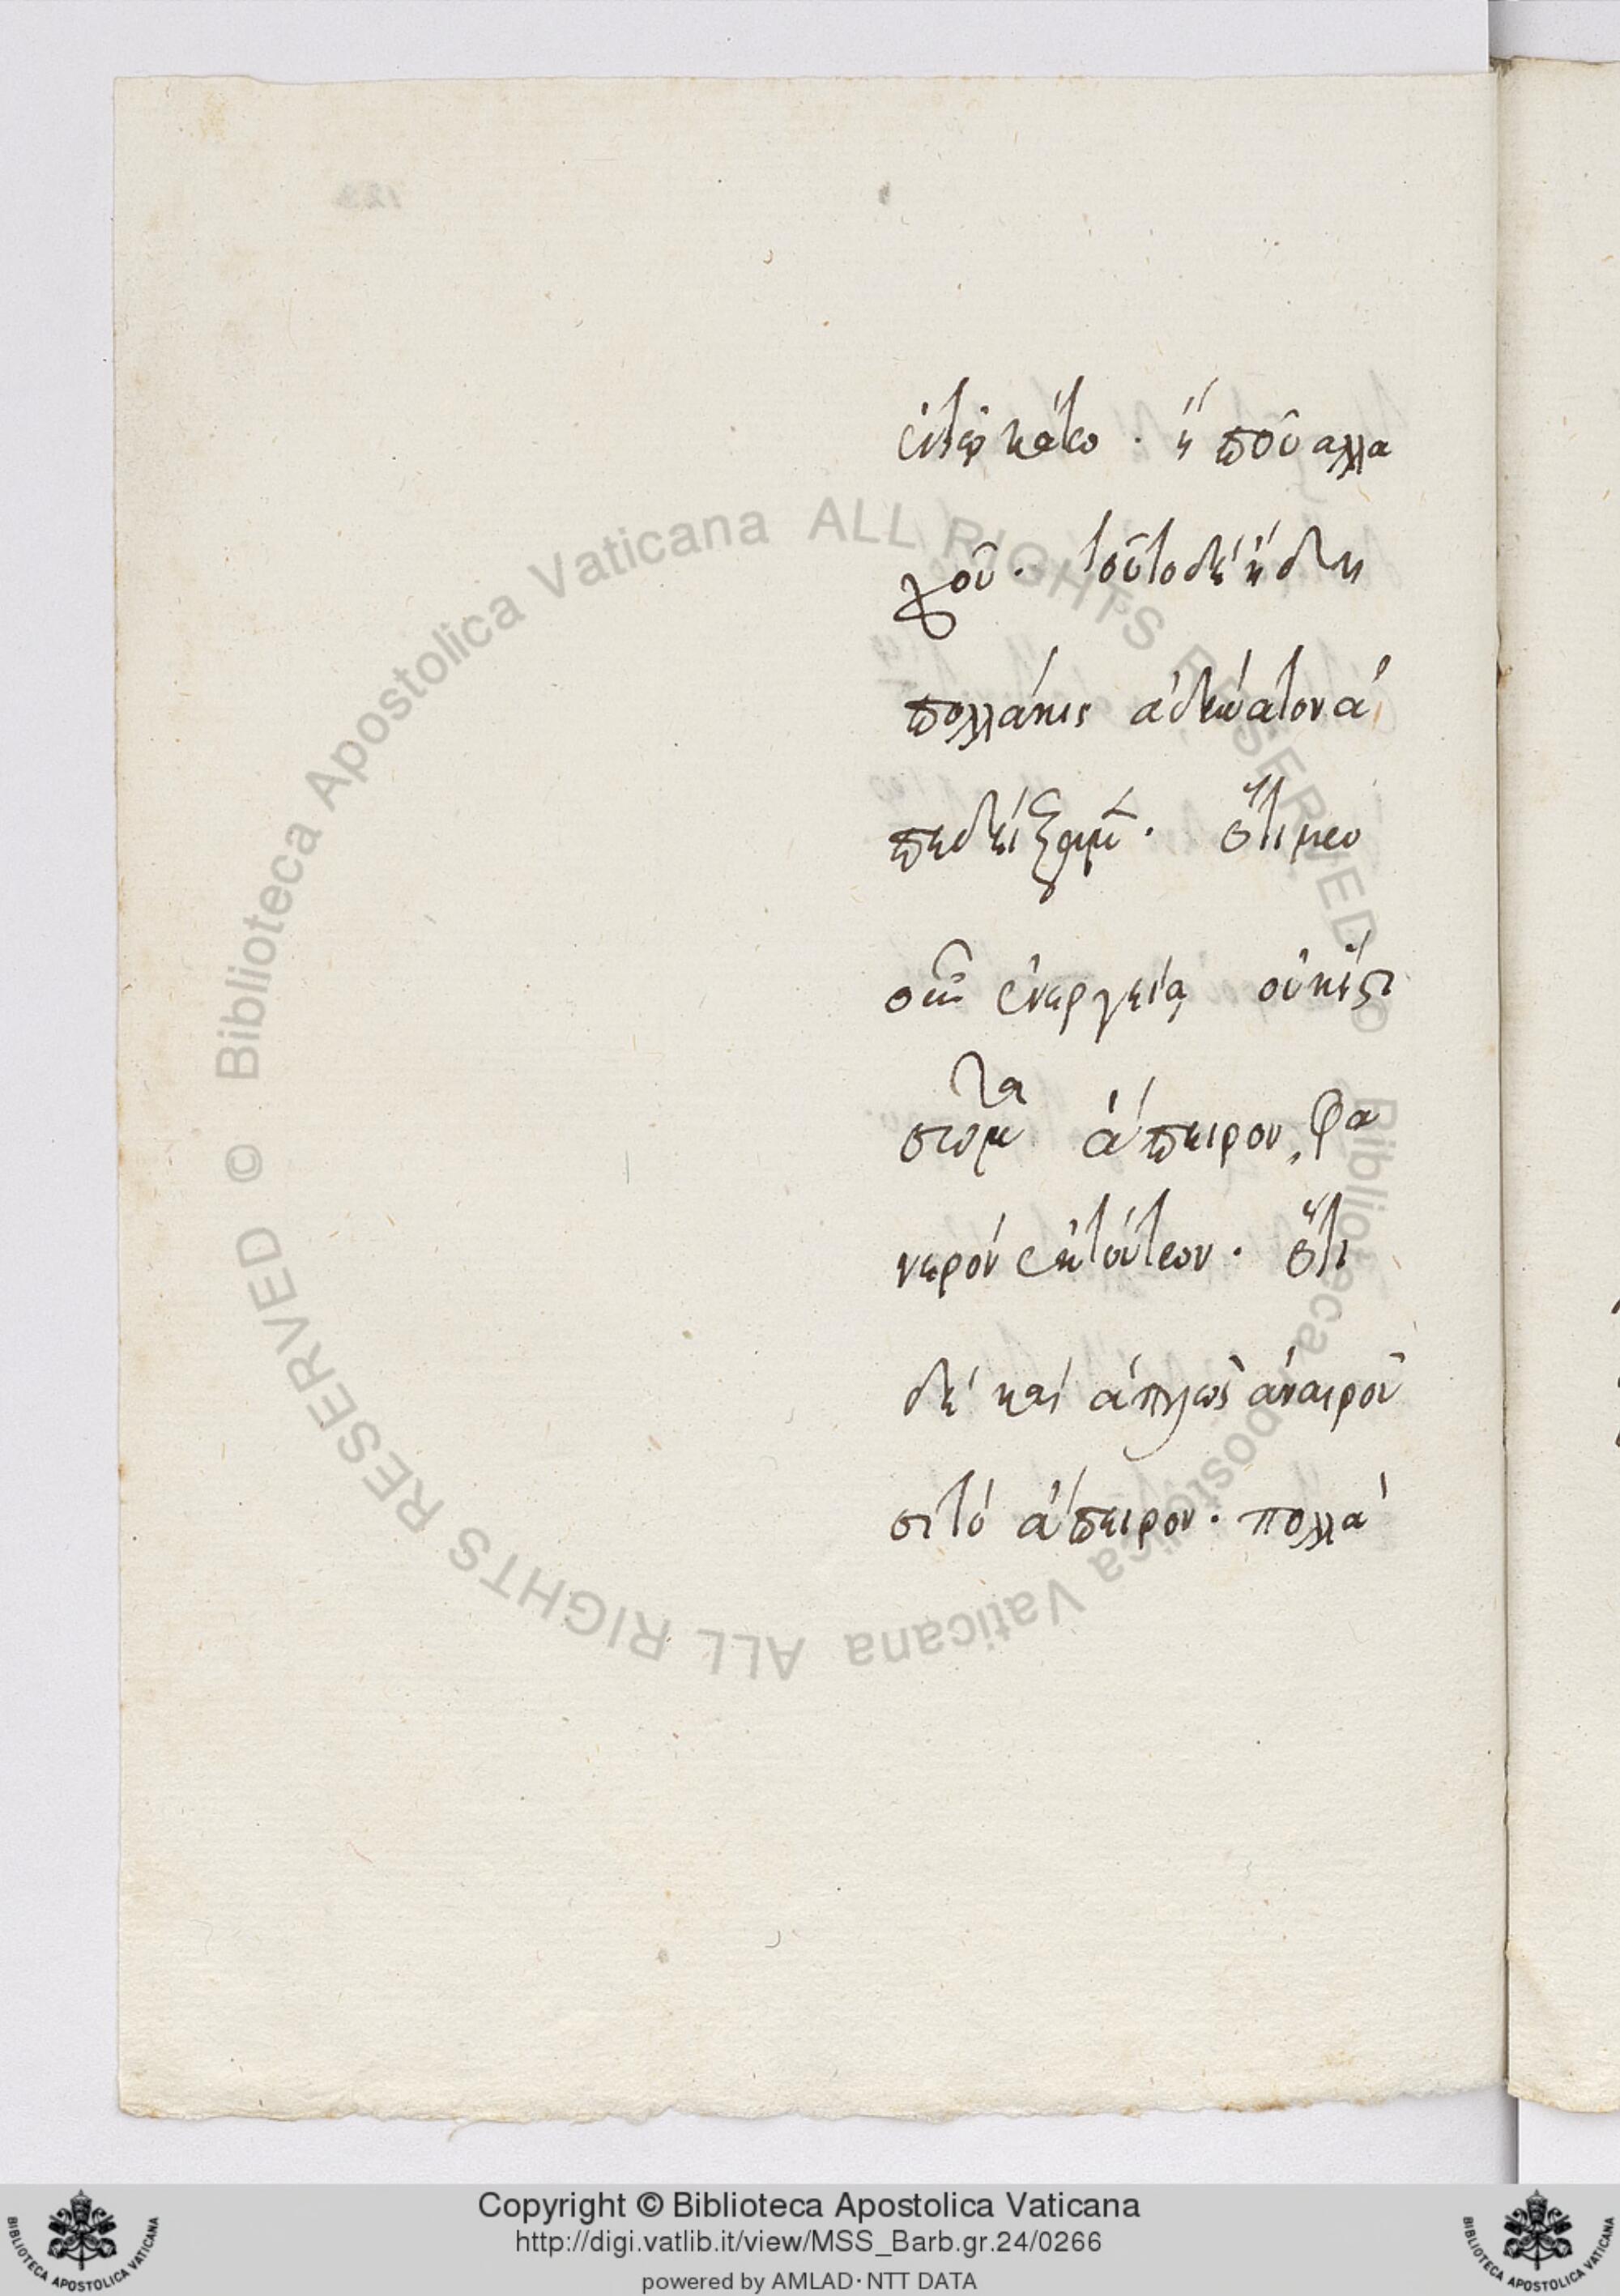 ἐν τῷ κάτω · ἤ που αλλα
χοῦ · τοῦτο δὲ ἤδη
πολλάκις ἀδύνατον ἀ
πεδείξαμεν · ὅτι μεν
οὖν ἐνεργείᾳ οὐκ ἔστι
σῶμα ἄπειρον, φα
νερόν ἐκ τούτων · ὅτι
δέ καί ἁπλῶς ἀναιροῦ
σι τό ἄπειρον · πολλά
Copyright © Biblioteca Apostolica Vaticana
http://digi.vatlib.it/view/MSS_Barb.gr.24/0266
powered by AMLAD·NTT DATA
© Biblioteca Apostolica Vaticana ALL RIGHTS RESERVED
© Biblioteca Apostolica Vaticana ALL RIGHTS RESERVED
BIBLIOTECA APOSTOLICA VATICANA
BIBLIOTECA APOSTOLICA VATICANA